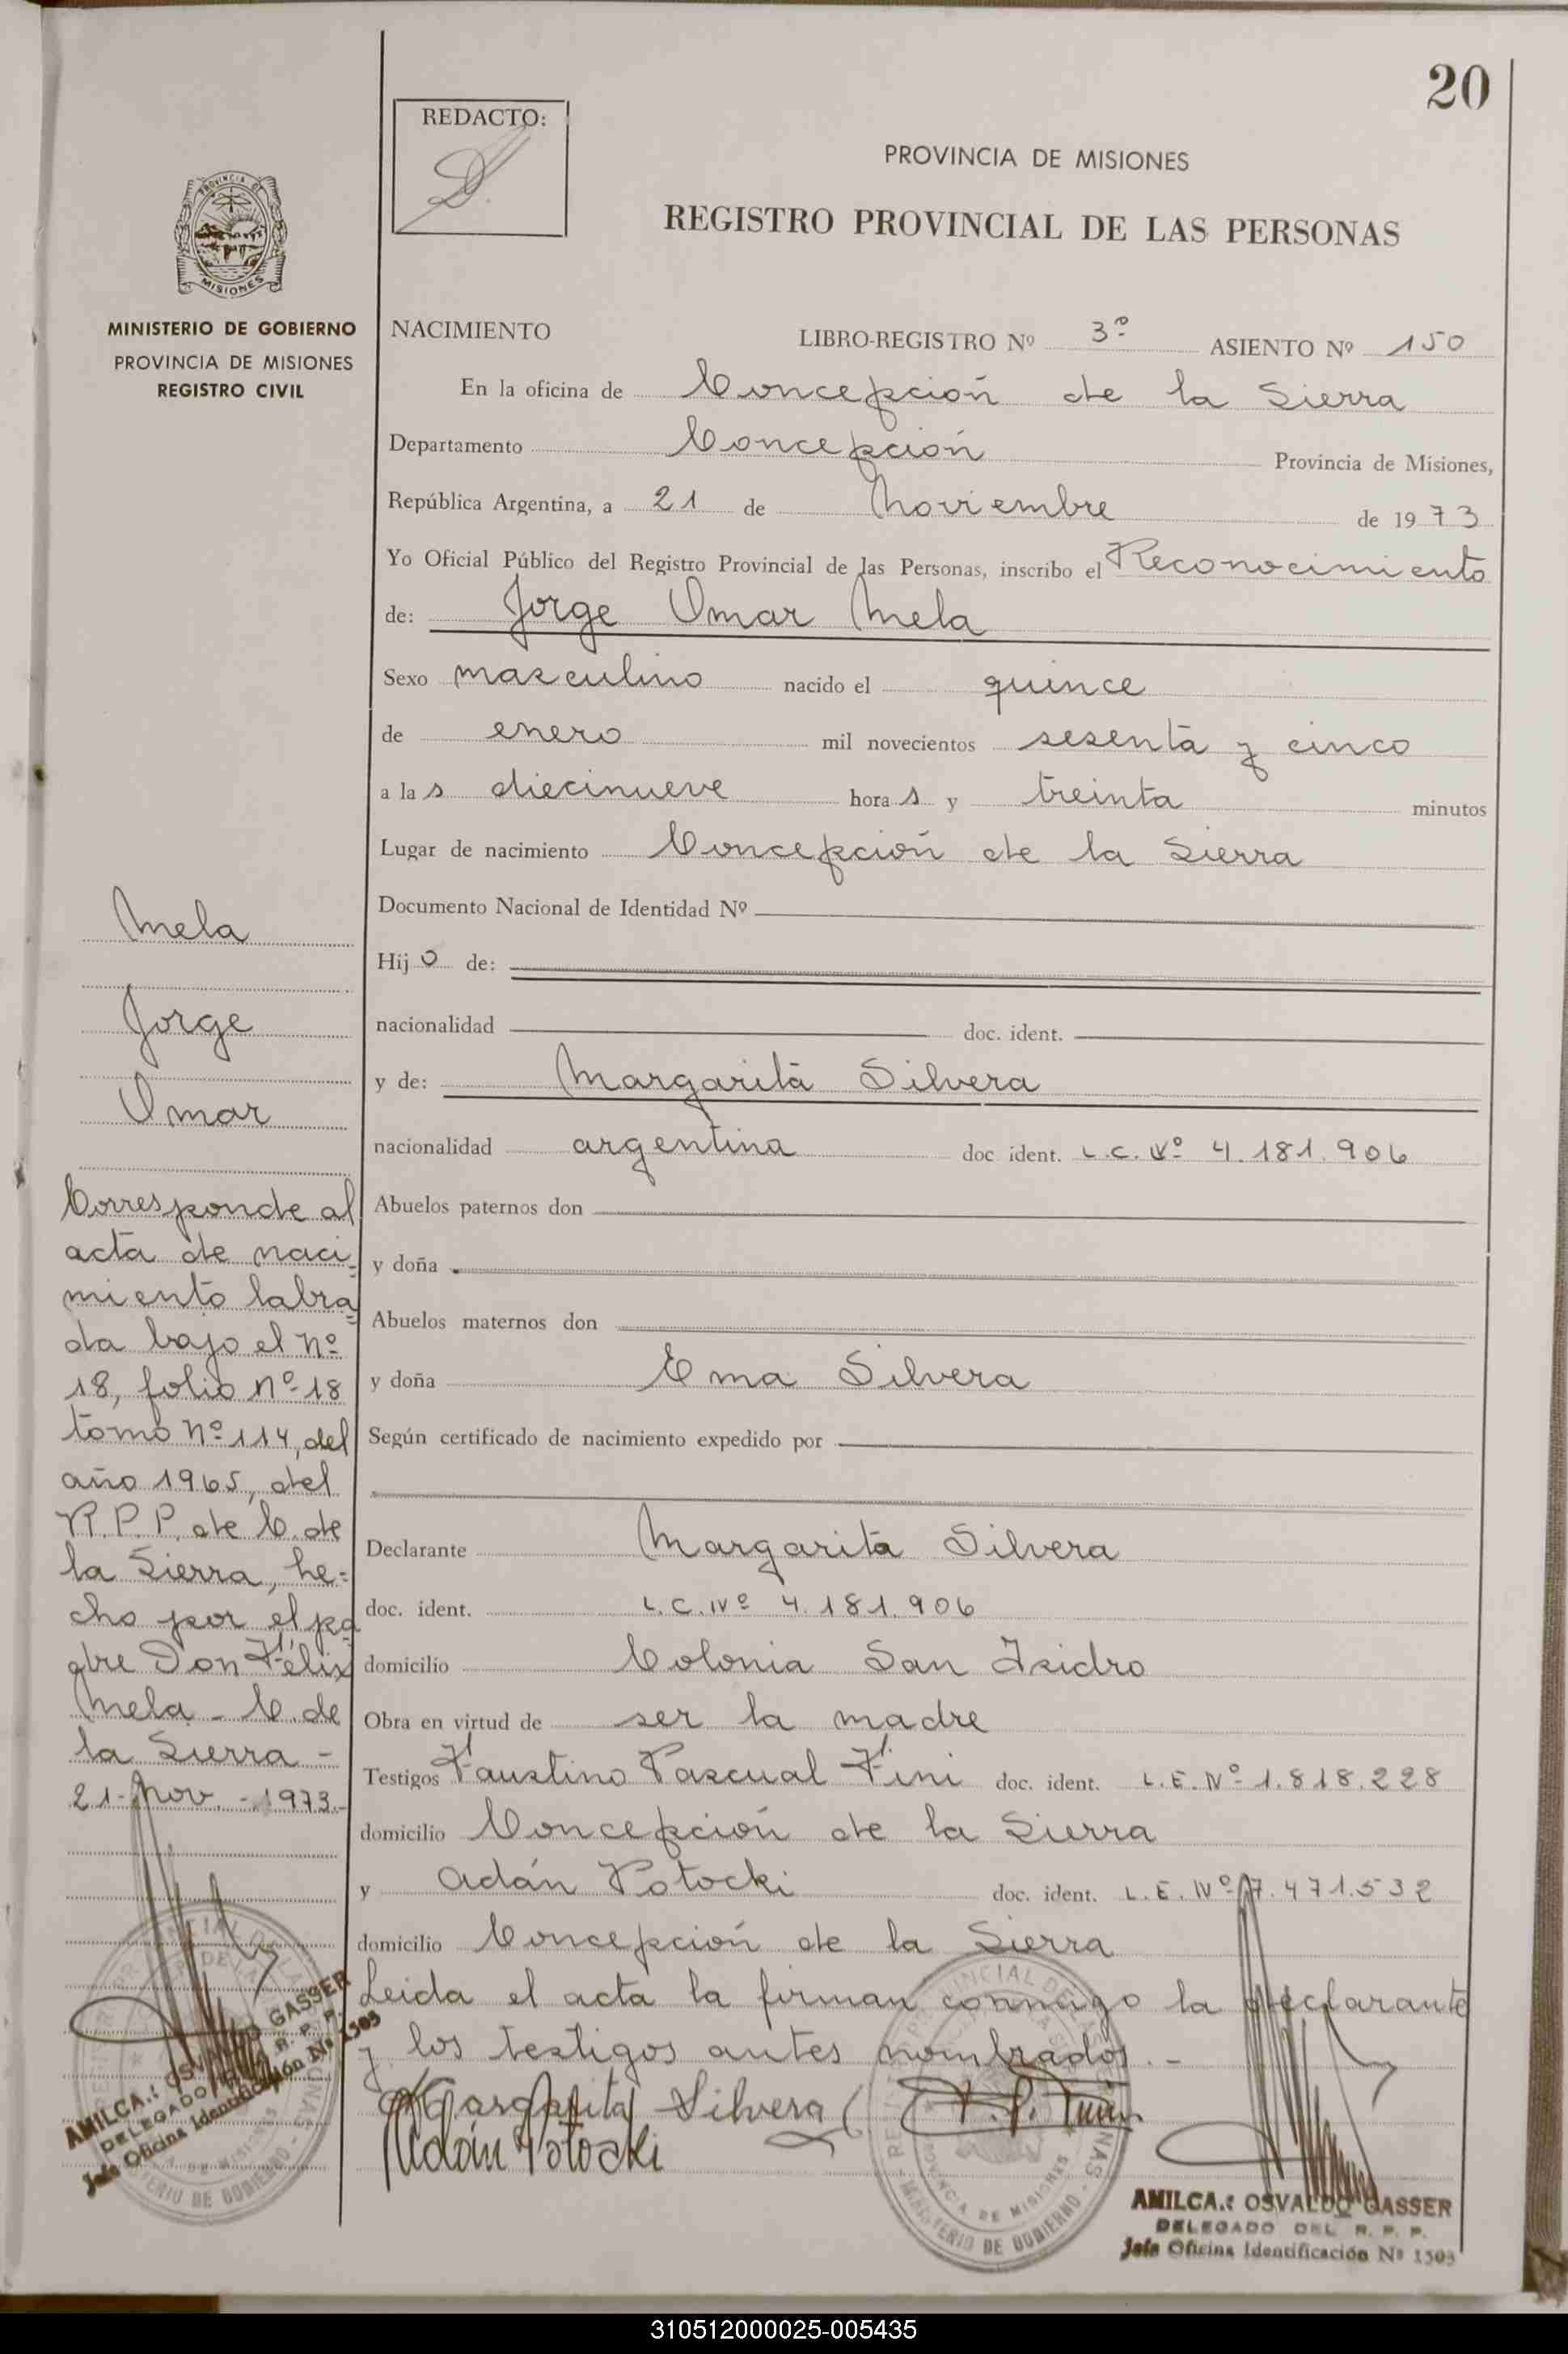 20
REDACTO:
PROVINCIA DE MISIONES
REGISTRO PROVINCIAL DE LAS PERSONAS
PROVINCIA DE
MISIONES
MINISTERIO DE GOBIERNO
PROVINCIA DE MISIONES
REGISTRO CIVIL
NACIMIENTO LIBRO-REGISTRO Nº 3º ASIENTO Nº 150
En la oficina de Concepción de la Sierra
Departamento Concepción Provincia de Misiones,
República Argentina, a 21 de Noviembre de 1973
Yo Oficial Público del Registro Provincial de las Personas, inscribo el Reconocimiento
de: Jorge Omar Mela
Sexo masculino nacido el quince
de enero mil novecientos sesenta y cinco
a las diecinueve horas y treinta minutos
Lugar de nacimiento Concepción de la Sierra
Documento Nacional de Identidad Nº
Hijo de:
nacionalidad doc. ident.
y de: Margarita Silvera
nacionalidad argentina doc ident. L.C. Nº 4.181.906
Abuelos paternos don
y doña
Abuelos maternos don
y doña Ema Silvera
Según certificado de nacimiento expedido por
Declarante Margarita Silvera
doc. ident. L.C. Nº 4.181.906
domicilio Colonia San Isidro
Obra en virtud de ser la madre
Testigos Faustino Pascual Fini doc. ident. L.E. Nº 1.818.228
domicilio Concepción de la Sierra
y Adán Potocki doc. ident. L.E. Nº 7.471.532
domicilio Concepción de la Sierra
Leida el acta la firman conmigo la declarante
y los testigos antes nombrados.-
Margarita Silvera
Adán Potocki
AMILCAR OSVALDO GASSER
DELEGADO DEL R. P. P.
Jefe Oficina Identificación Nº 1503
Mela
Jorge
Omar
Corresponde al
acta de naci-
miento labra=
da bajo el Nº
18, folio Nº 18
tomo Nº 114, del
año 1965, del
R.P.P. de C. de
la Sierra, he=
cho por el pa
dre Don Félix
Mela - C. de
la Sierra -
21- Nov. - 1973.-
AMILCAR OSVALDO GASSER
DELEGADO DEL R. P. P.
Jefe Oficina Identificación Nº 1503
310512000025-005435